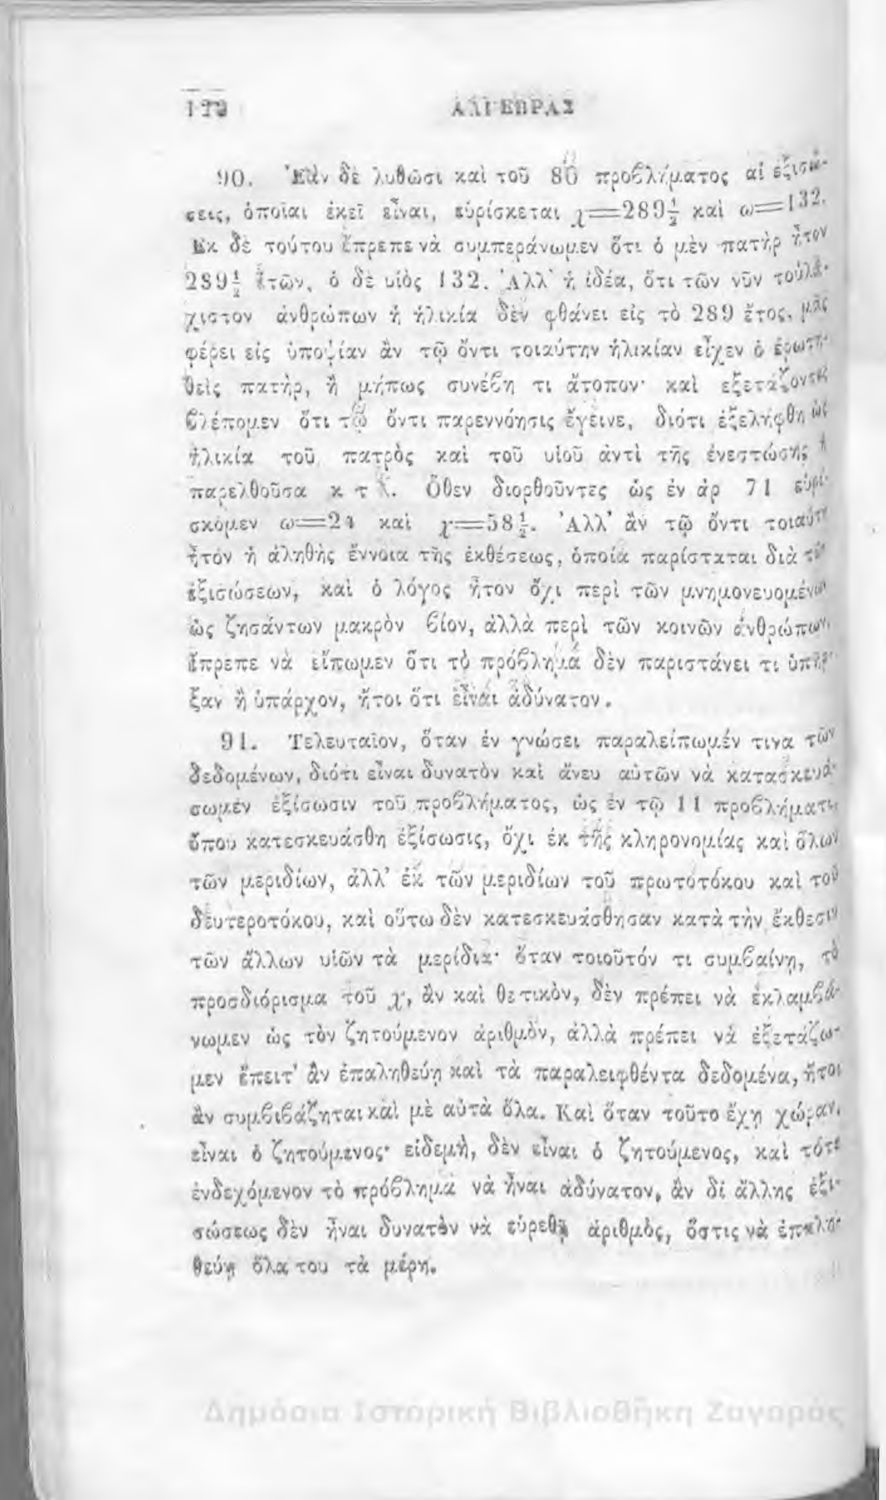 ΑΛΓΕΒΡΑΣ
90. Ἐὰν δὲ λυθῶσι καὶ τοῦ 80 προβλήματος αἱ ἐξισώ-
σεις, ὁποῖαι ἐκεῖ εἶναι, εὑρίσκεται χ=289½ καὶ ω=132.
Ἐκ δὲ τούτου ἔπρεπε νὰ συμπεράνωμεν ὅτι ὁ μὲν πατὴρ ἦτον
289½ ἐτῶν, ὁ δὲ υἱὸς 132. Ἀλλ' ἡ ἰδέα, ὅτι τῶν νῦν τοὐλά-
χιστον ἀνθρώπων ἡ ἡλικία δὲν φθάνει εἰς τὸ 289 ἔτος, μᾶς
φέρει εἰς ὑποψίαν ἂν τῷ ὄντι τοιαύτην ἡλικίαν εἶχεν ὁ ἐρωτη-
θεὶς πατὴρ, ἢ μήπως συνέβη τι ἄτοπον· καὶ ἐξετάζοντες
βλέπομεν ὅτι τῷ ὄντι παρεννόησις ἔγεινε, διότι ἐξελήφθη ὡς
ἡλικία τοῦ πατρὸς καὶ τοῦ υἱοῦ ἀντὶ τῆς ἐνεστώσης ἡ
παρελθοῦσα κ τ λ. Ὅθεν διορθοῦντες ὡς ἐν ἀρ 71 εὑρί-
σκομεν ω=24 καὶ χ=58½. Ἀλλ' ἂν τῷ ὄντι τοιαύτη
ἦτον ἡ ἀληθὴς ἔννοια τῆς ἐκθέσεως, ὁποία παρίσταται διὰ τῶν
ἐξισώσεων, καὶ ὁ λόγος ἦτον ὄχι περὶ τῶν μνημονευομένων
ὡς ζησάντων μακρὸν βίον, ἀλλὰ περὶ τῶν κοινῶν ἀνθρώπων,
ἔπρεπε νὰ εἴπωμεν ὅτι τὸ πρόβλημα δὲν παριστάνει τι ὑπῆρ-
ξαν ἢ ὑπάρχον, ἤτοι ὅτι εἶναι ἀδύνατον.
91. Τελευταῖον, ὅταν ἐν γνώσει παραλείπωμέν τινα τῶν
δεδομένων, διότι εἶναι δυνατὸν καὶ ἄνευ αὐτῶν νὰ κατασκευά-
σωμέν ἐξίσωσιν τοῦ προβλήματος, ὡς ἐν τῷ 11 προβλήματι,
ὅπου κατεσκευάσθη ἐξίσωσις, ὄχι ἐκ τῆς κληρονομίας καὶ ὅλων
τῶν μεριδίων, ἀλλ' ἐκ τῶν μεριδίων τοῦ πρωτοτόκου καὶ τοῦ
δευτεροτόκου, καὶ οὕτω δὲν κατεσκευάσθησαν κατὰ τὴν ἔκθεσιν
τῶν ἄλλων υἱῶν τὰ μερίδια· ὅταν τοιοῦτόν τι συμβαίνῃ, τὸ
προσδιόρισμα τοῦ χ, ἂν καὶ θετικὸν, δὲν πρέπει νὰ ἐκλαμβά-
νωμεν ὡς τὸν ζητούμενον ἀριθμὸν, ἀλλὰ πρέπει νὰ ἐξετάζω-
μεν ἔπειτ' ἂν ἐπαληθεύῃ καὶ τὰ παραλειφθέντα δεδομένα, ἤτοι
ἂν συμβιβάζηται καὶ μὲ αὐτὰ ὅλα. Καὶ ὅταν τοῦτο ἔχῃ χώραν,
εἶναι ὁ ζητούμενος· εἰδεμὴ, δὲν εἶναι ὁ ζητούμενος, καὶ τότε
ἐνδεχόμενον τὸ πρόβλημα νὰ ἦναι ἀδύνατον, ἂν δι ἄλλης ἐξι-
σώσεως δὲν ἦναι δυνατὸν νὰ εὑρεθῇ ἀριθμὸς, ὅστις νὰ ἐπαλη-
θεύῃ ὅλα του τὰ μέρη.
Δημόσια Ιστορική Βιβλιοθήκη Ζαγοράς